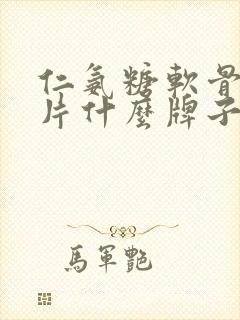 仁氨糖軟骨
片什麼牌子
馬軍艷